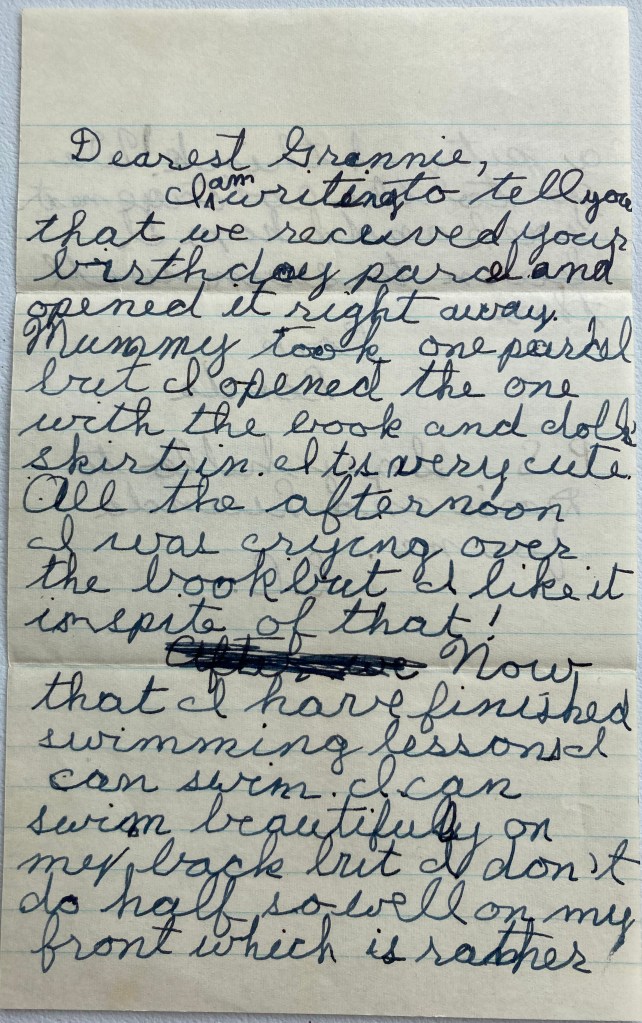 Dearest Grannie,
I am writing to tell you
that we received your
birthday parcel and
opened it right away.
Mummy took one parcel
but I opened the one
with the book and dolls
skirt in. It's very cute.
All the afternoon
I was crying over
the book but I like it
in spite of that!
After we Now
that I have finished
swimming lessons I
can swim. I can
swim beautifully on
my back but I don't
do half so well on my
front which is rather